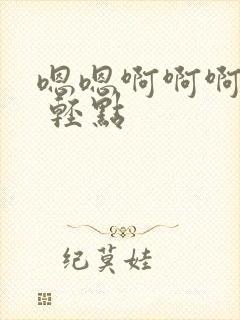 嗯嗯啊啊啊
輕點
纪莫娃